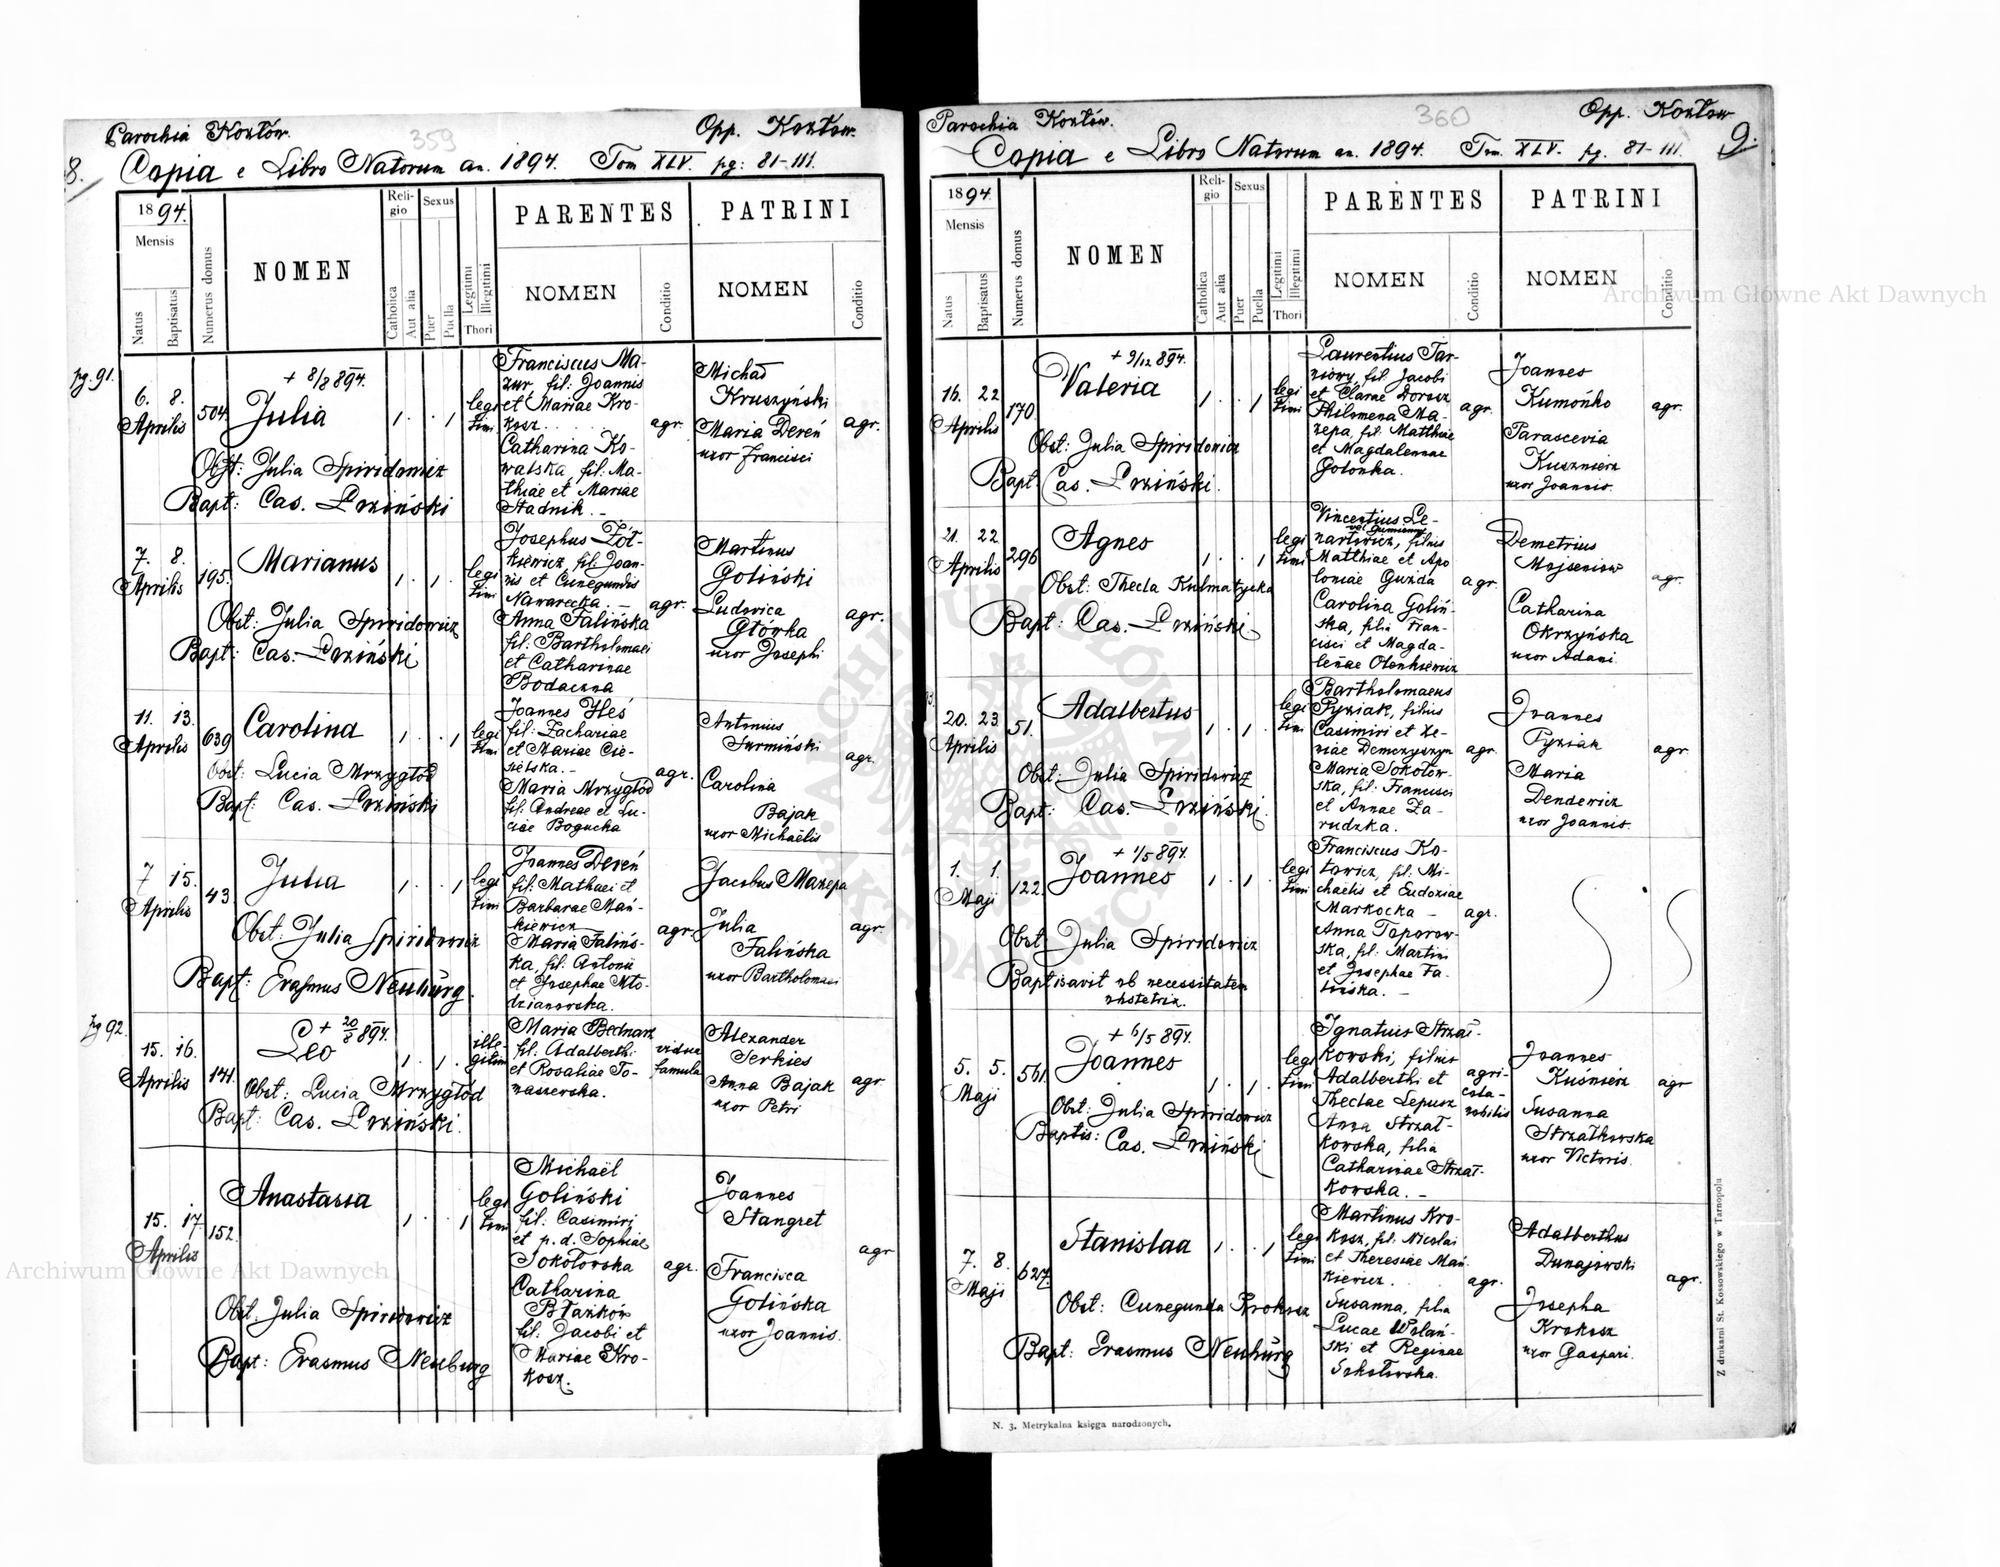 Parochia Kozłów.
359
Opp. Kozłów.
8.
Copia e Libro Natorum an. 1894. Tom XLV. pg: 81-111.
1894.
Mensis
Natus
Baptisatus
Numerus domus
NOMEN
Religio
Catholica
Aut alia
Sexus
Puer
Puella
Legitimi
Illegitimi
Thori
PARENTES
NOMEN
Conditio
PATRINI
NOMEN
Conditio
pg. 91.
6. 8.
Aprilis
504
+ 8/8 894.
Julia
1 . . 1
legi
timi
Obst: Julia Spiridowicz
Bapt: Cas. Lrziński
Franciscus Ma-
zur, fil: Joannis
et Mariae Kro-
kosz . . .
Catharina Ko-
walska fil: Ma-
thiae et Mariae
Stadnik. -
agr.
Michał
Kruszyński
Maria Dereń
uxor Francisci
agr.
7. 8.
Aprilis
195.
Marianus
1 . 1 .
legi
timi
Obst: Julia Spiridowicz
Bapt: Cas. Lrziński
Josephus Żół-
kiewicz, fil: Joan-
nis et Cunegundis
Nawarecka. -
Anna Falińska
fil: Bartholomaei
et Catharinae
Bodaczna
agr.
Martinus
Goliński
Ludovica
Główka
uxor Josephi
agr.
11. 13.
Aprilis
639
Carolina
1 . . 1
legi
timi
Obst: Lucia Mrzygłód
Bapt: Cas. Lrziński
Joannes Ileś
fil: Zachariae
et Mariae Cie-
sielska. -
Maria Mrzygłód
fil: Andreae et Lu-
ciae Bogucka
agr.
Antonius
Surmiński
Carolina
Bajak
uxor Michaëlis
agr.
7 15.
Aprilis
43
Julia
1 . . 1
legi
timi
Obst: Julia Spiridowicz
Bapt: Erasmus Neuburg.
Joannes Dereń
fil: Mathaei et
Barbarae Mań-
kiewicz
Maria Falińs-
ka, fil: Antonii
et Josephae Mło-
dzianowska.
agr.
Jacobus Mazepa
Julia
Falińska
uxor Bartholomaei
agr.
pg 92.
15. 16.
Aprilis
141.
+ 20/8 894.
Leo
1 . 1 .
ille-
gitimi
Obst: Lucia Mrzygłód
Bapt: Cas. Lrziński.
Maria Bednarz
fil: Adalberthi
et Rosaliae To-
maszewska.
vidua
famula
Alexander
Serkies
Anna Bajak
uxor Petri
agr
15. 17.
Aprilis
152.
Anastasia
1 . . 1
legi
timi
Obst. Julia Spiridowicz
Bapt: Erasmus Neuburg
Michaël
Goliński
fil: Casimiri
et p. d. Sophiae
Sokołowska
Catharina
Błazków
fil: Jacobi et
Mariae Kro-
kosz.
agr.
Joannes
Stangret
Francisca
Golińska
uxor Joannis.
agr
Parochia Kozłów.
360
Opp. Kozłów
9.
Copia e Libro Natorum an. 1894. Tom. XLV. pg. 81-111.
1894.
Mensis
Natus
Baptisatus
Numerus domus
NOMEN
Religio
Catholica
Aut alia
Sexus
Puer
Puella
Legitimi
Illegitimi
Thori
PARENTES
NOMEN
Conditio
PATRINI
NOMEN
Conditio
16. 22
Aprilis
170
+ 9/12 894.
Valeria
1 . . 1
legi
timi
Obst: Julia Spiridowicz
Bapt: Cas. Lrziński.
Laurentius Tar-
nowy, fil. Jacobi
et Clarae Dorosz
Philomena Ma-
zepa, fil: Matthiae
et Magdalennae
Golonka.
agr.
Joannes
Kumońko
Parascevia
Kusznierz
uxor Joannis.
agr.
21. 22
Aprilis
296
Agnes
1 . . 1
legi
timi
Obst: Thecla Kulmatycka
Bapt: Cas. Lrziński
Vincentius Le-
nartowicz, filius
Matthiae et Apo
loniae Guzda
Carolina Goliń-
ska, filia Fran-
cisci et Magda-
lenae Olenkiewicz
agr.
Demetrius
Mojseniow
Catharina
Okrzyńska
uxor Adami.
agr.
20. 23
Aprilis
51.
Adalbertus
1 . 1 .
legi
timi
Obst: Julia Spiridowicz
Bapt: Cas. Lrziński.
Bartholomaeus
Pyziak, filius
Casimiri et Xe-
niae Demczyszyn
Maria Sokołow-
ska, fil: Francisci
et Annae Za-
rudzka.
agr.
Joannes
Pyziak
Maria
Dendewicz
uxor Joannis.
agr.
1. 1.
Maji
122.
+ 1/5 894.
Joannes
1 . 1 .
legi
timi
Obst: Julia Spiridowicz
Baptisavit ob necessitatem
obstetrix.
Franciscus Ko-
towicz, fil: Mi-
chaelis et Eudoxiae
Markocka -
Anna Toporow-
ska, fil: Martini
et Josephae Fa-
lińska. -
agr.
5. 5.
Maji
561.
+ 6/5 894.
Joannes
1 . 1 .
legi
timi
Obst: Julia Spiridowicz
Baptis: Cas. Lrziński
Ignatius Strzał-
kowski, filius
Adalberthi et
Theclae Lepusz
Anna Strzał-
kowska, filia
Catharinae Strzał-
kowska. -
agri-
cola-
nobilis
Joannes
Kuśnierz
Susanna
Strzałkowska
uxor Victoris.
agr
7. 8.
Maji
627.
Stanislaa
1 . . 1
legi
timi
Obst: Cunegunda Krokosz
Bapt: Erasmus Neuburg
Martinus Kro-
kosz, fil: Nicolai
et Theresiae Mań
kiewicz. .
Susanna, filia
Lucae Wolań-
ski et Reginae
Sokołowska.
agr.
Adalberthus
Dunajewski
Josepha
Krokosz
uxor Gaspari.
agr.
N. 3. Metrykalna księga narodzonych.
Z drukarni St. Kossowskiego w Tarnopolu
Archiwum Główne Akt Dawnych
Archiwum Główne Akt Dawnych
ARCHIWUM GŁÓWNE AKT DAWNYCH